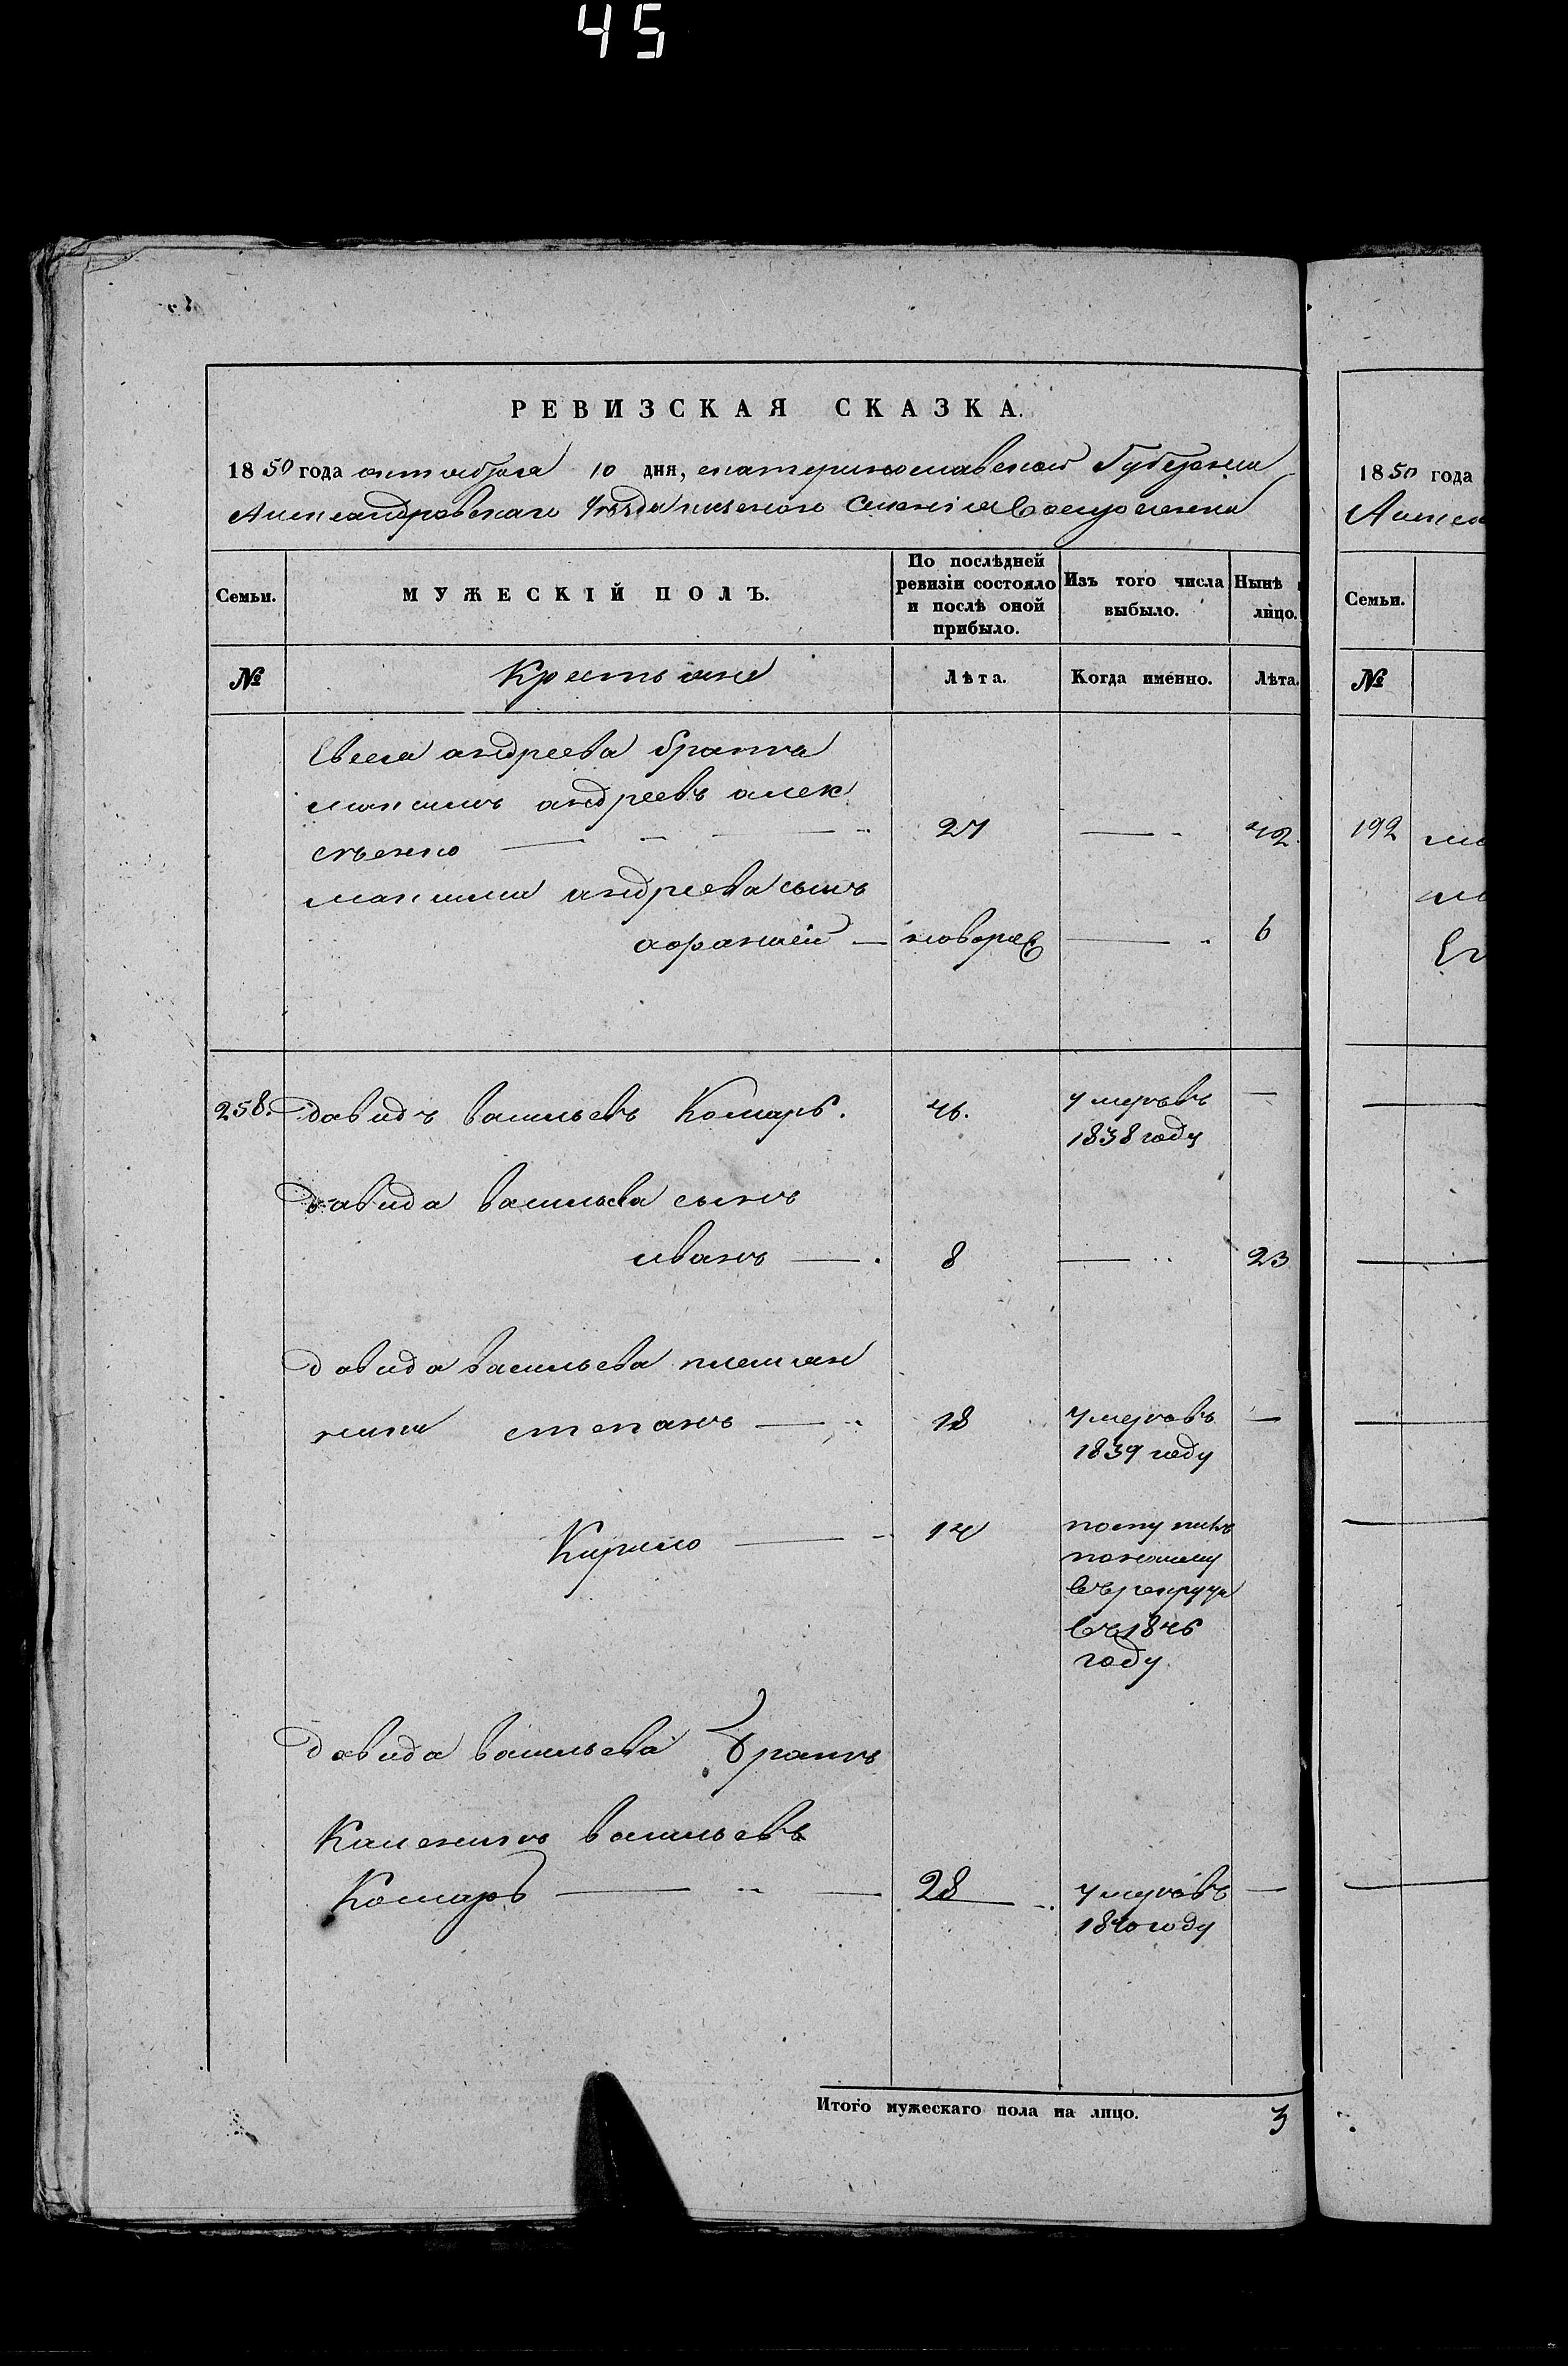 45
РЕВИЗСКАЯ СКАЗКА.
1850 года октября 10 дня, екатеринославской Губернии
Александровскаго Уѣзда казенаго селенія
Семьи. МУЖЕСКІЙ ПОЛЪ. По послѣдней ревизіи состояло и послѣ оной прибыло. Изъ того числа выбыло. Нынѣ лицо.
№ Крестьяне Лѣта. Когда именно. Лѣта.
андреева брата
максимъ андреевъ алек
сѣенко 27 42
максима андреева сынъ
новорж 6
258. Давидъ васильевъ Комаръ. 46. умеръ въ
1838 году
Давида васильева сынъ
иванъ 8 23
Давида васильева племян
ники степанъ 18 умеръ въ
1839 году
Кирило 14 поступилъ
въ рекруты
въ 1846
году
Давида васильева братъ
васильевъ
Комаръ 28 умеръ въ
1840 году
Итого мужескаго пола на лицо. 3
1850 года
Семьи.
№
192